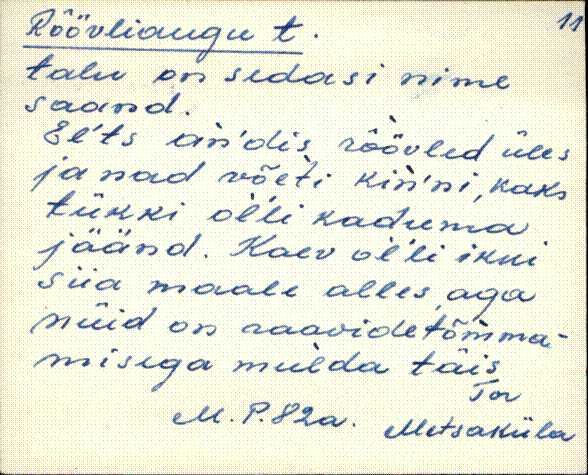 11
Röövliaugu t.
talu on sedasi nime
saand.
El'ts an'dis röövled üles
ja nad võeti kin'ni, kaks
tükki ol'li kaduma
jäänd. Kaev ol'li ikki
siia maale alles, aga
nüid on raavidetõmma-
misega mulda täis
Tor
M. P. 82a. Metsaküla